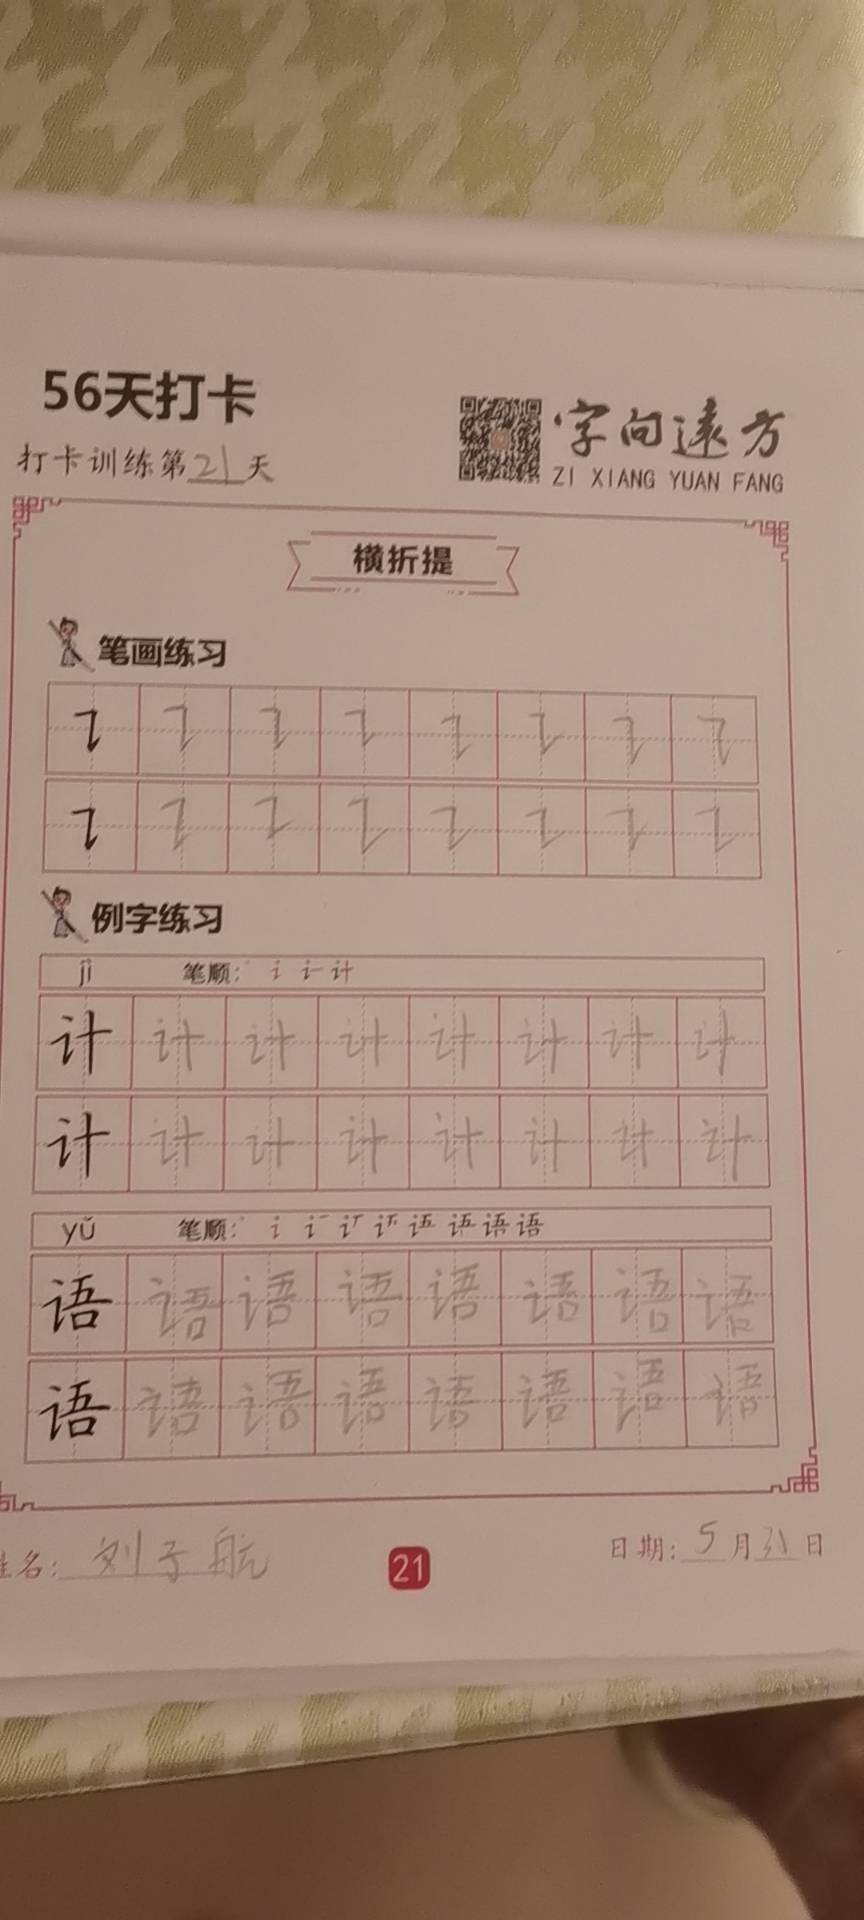 56天打卡
打卡训练第21天
字向遠方
ZI XIANG YUAN FANG
横折提
笔画练习
例字练习
jì 笔顺: 丶 讠 计
计 计 计 计 计 计 计 计
计 计 计 计 计 计 计 计
yǔ 笔顺:
语 语 语 语 语 语 语 语
语 语 语 语 语 语 语 语
姓名: 刘子航
21
日期: 5月31日